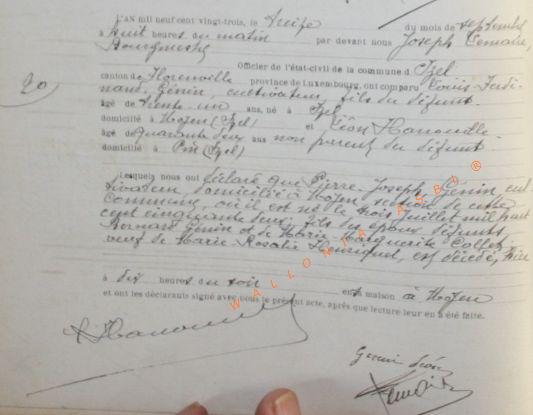 L'AN mil neuf cent vingt-trois, le treize du mois de septembre
à huit heures du matin par devant nous Joseph Lemaire,
Bourgmestre
Officier de l'état-civil de la commune d'Izel
20 canton de Florenville province de Luxembourg, ont comparu Louis-Ferdi-
nand Génin, cultivateur, fils du défunt
âgé de trente-un ans, né à Izel
domicilié à Moyen (Izel) et Léon
âgé de quarante deux ans non parent du défunt
domicilié à Pin (Izel)
Lesquels nous ont déclaré que Pierre-Joseph Génin, cul
tivateur, domicilié à Moyen, section de cette
Commune, où il est né le trois Juillet mil huit
cent cinquante deux, fils des époux défunts,
Bernard Génin et de Marie-Marguerite Collet,
veuf de Marie Rosalie Henriquet, est décédé, hier
à dix heures du soir en sa maison à Moyen
et ont les déclarants signé avec nous le présent acte, après que lecture leur en a été faite.
WALLONIA ASBL ®